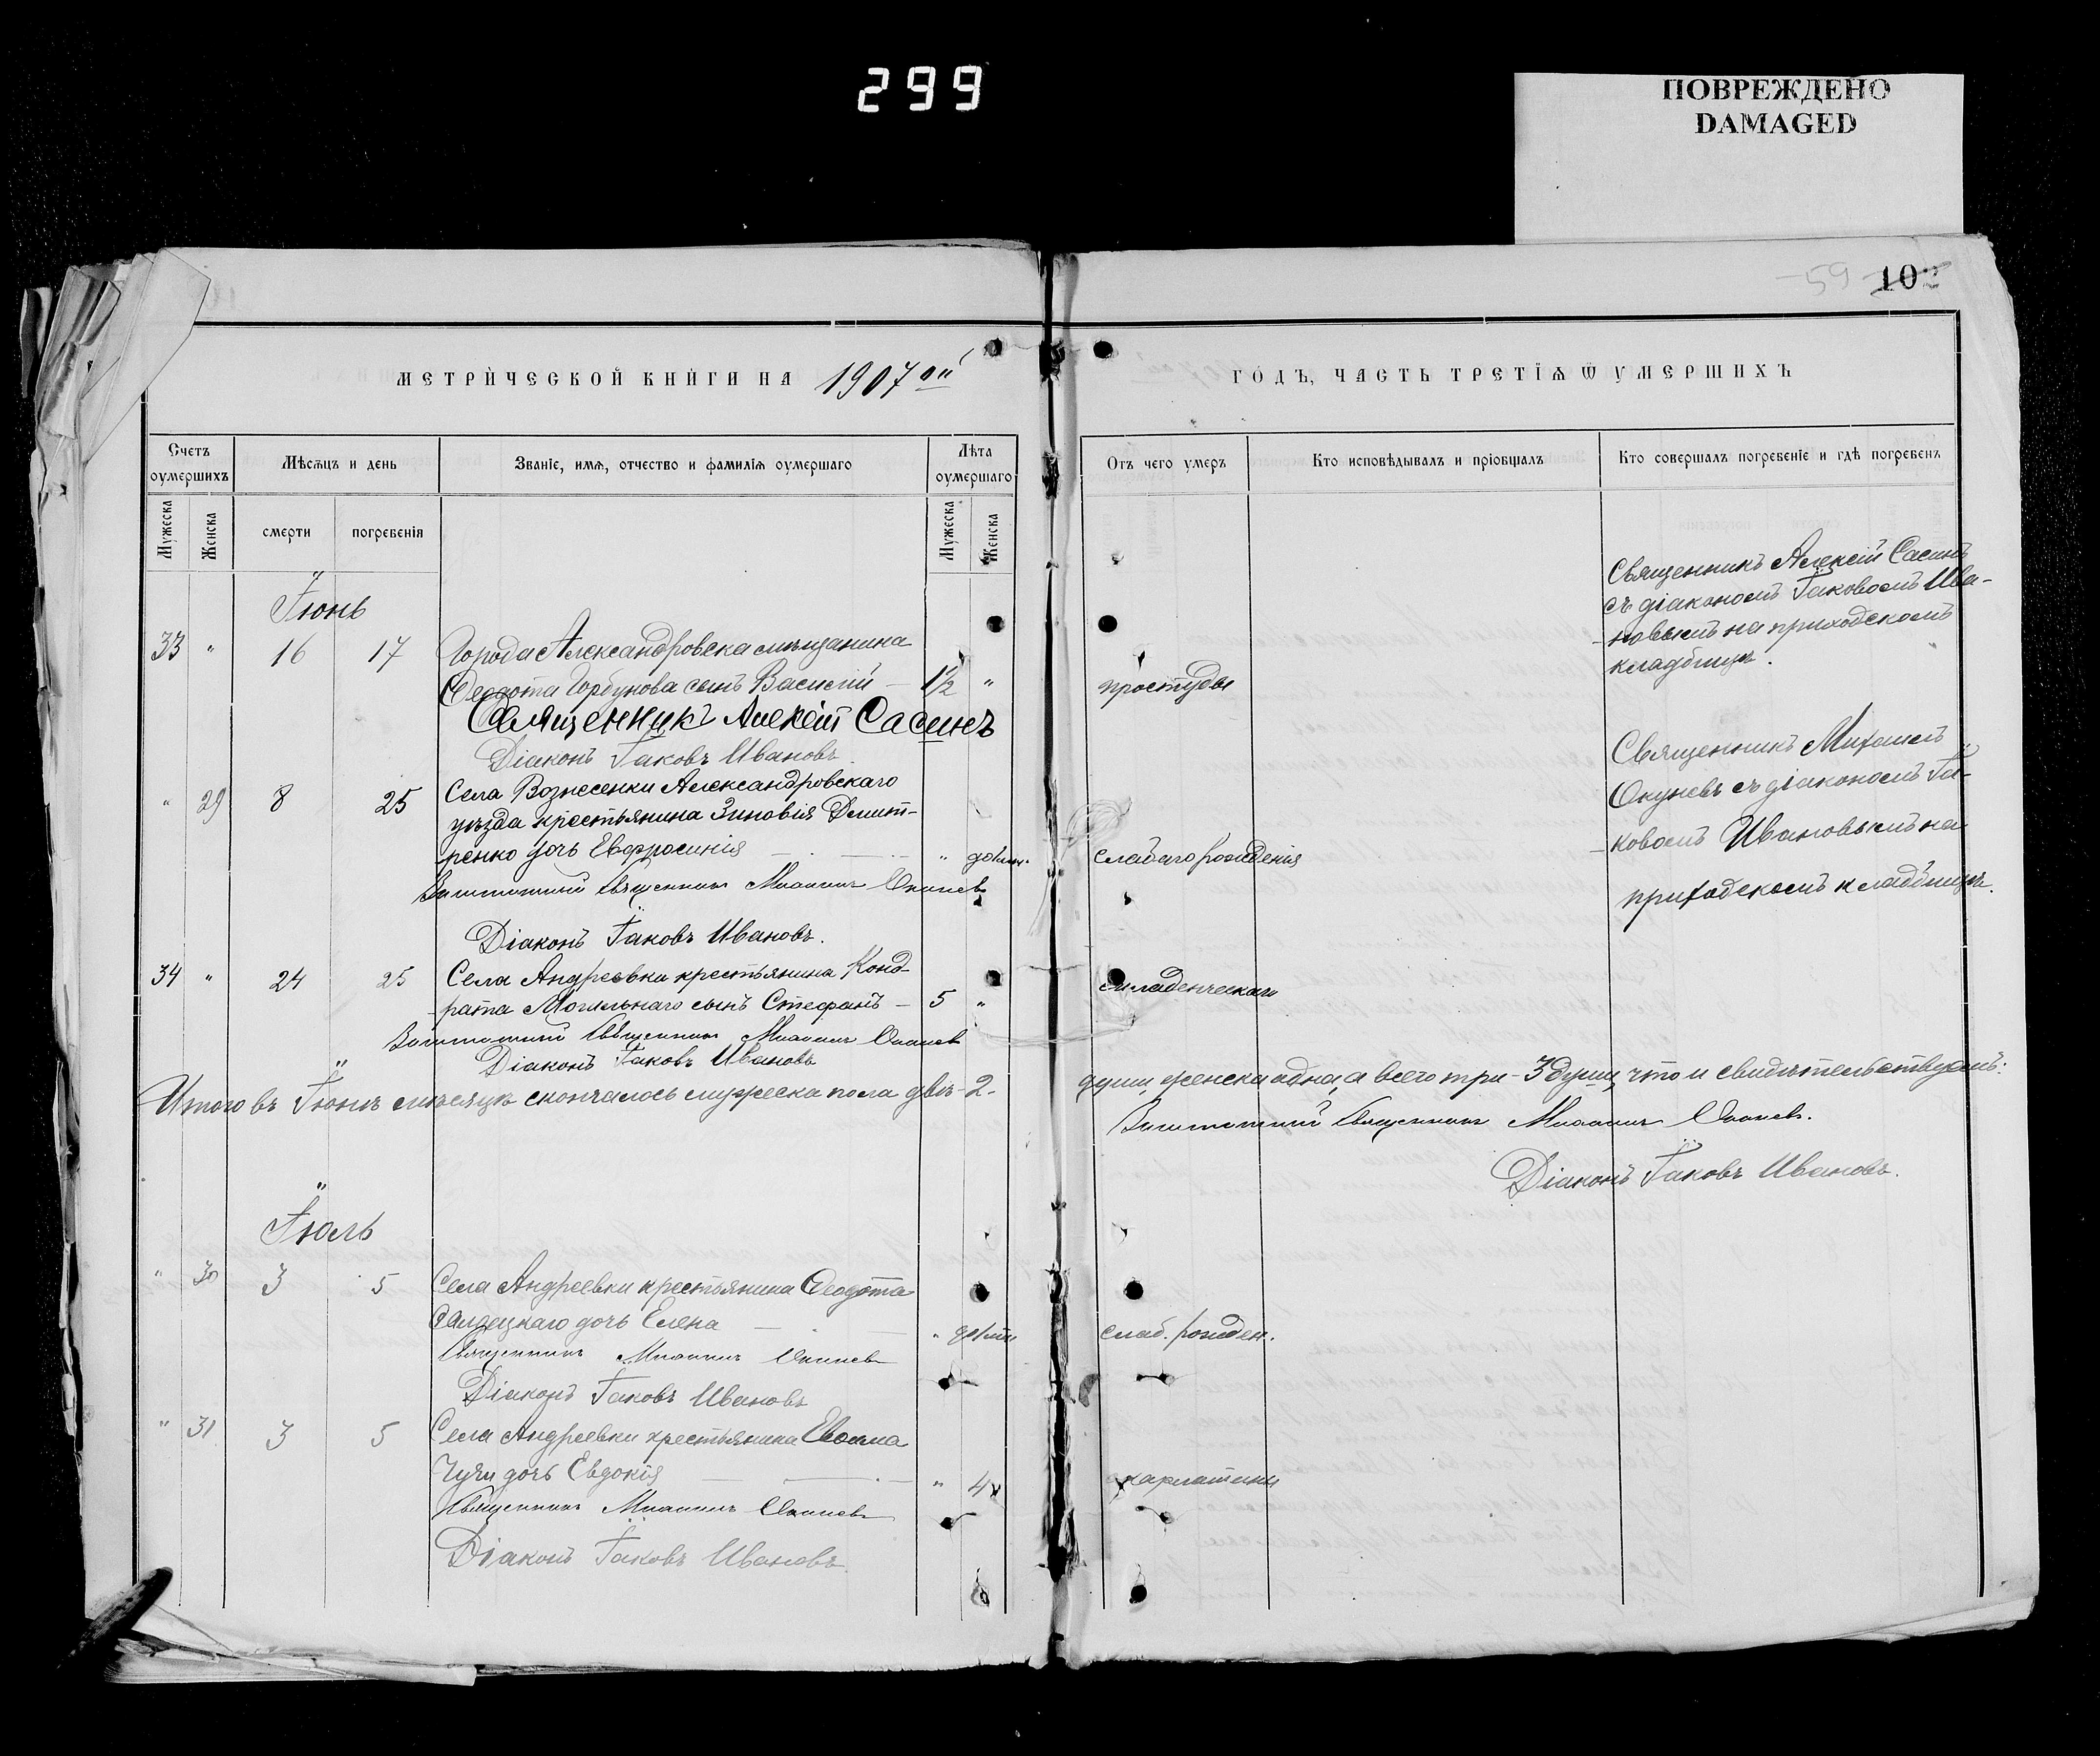 299
ПОВРЕЖДЕНО
DAMAGED
59 102
МЕТРИЧЕСКОЙ КНИГИ НА 1907ой ГОДЪ, ЧАСТЬ ТРЕТІѦ Ѿ УМЕРШИХЪ
Счетъ оумершихъ
Мѣсѧцъ и день
Званіе, имѧ, отчество и фамиліѧ оумершаго
Лѣта оумершаго
Отъ чего умеръ
Кто исповѣдывалъ и пріобщалъ
Кто совершалъ погребеніе и гдѣ погребенъ
Мужеска
Женска
смерти
погребенія
Мужеска
Женска
Іюнь
33 " 16 17 Города Александровска мѣщанина
Ѳеодота Горбунова сынъ Василій – 1½ " простуды
Священникъ Алексій Сасинъ
съ діакономъ Іаковомъ Ива-
новымъ на приходскомъ
кладбищѣ.
Священникъ Алексій Сасинъ
Діаконъ Іаковъ Ивановъ
" 29 8 25 Села Вознесенки Александровскаго
уѣзда крестьянина Зиновія Дмит-
ренко дочь Евфросинія " слабаго рожденія
Священникъ Михаилъ
Окуневъ съ діакономъ Іа-
ковомъ Ивановымъ на
приходскомъ кладбищѣ.
Заштатный Священникъ Михаилъ Окуневъ
Діаконъ Іаковъ Ивановъ.
34 " 24 25 Села Андреевки крестьянина Конд-
рата Могильнаго сынъ Стефанъ – 5 " младенческаго
Заштатный Священникъ Михаилъ Окуневъ
Діаконъ Іаковъ Ивановъ
Итого въ Іюнѣ мѣсяцѣ скончалось мужеска пола двѣ – 2. души, женска одна, а всего три – 3 души, что и свидѣтельствуемъ:
Заштатный Священникъ Михаилъ Окуневъ.
Діаконъ Іаковъ Ивановъ.
Іюль
" 30 3 5 Села Андреевки крестьянина Ѳеодота
дочь Елена " слаб. рожден.
Священникъ Михаилъ Окуневъ
Діаконъ Іаковъ Ивановъ
" 31 3 5 Села Андреевки крестьянина
дочь Евдокія " 4 скарлатины
Священникъ Михаилъ Окуневъ
Діаконъ Іаковъ Ивановъ